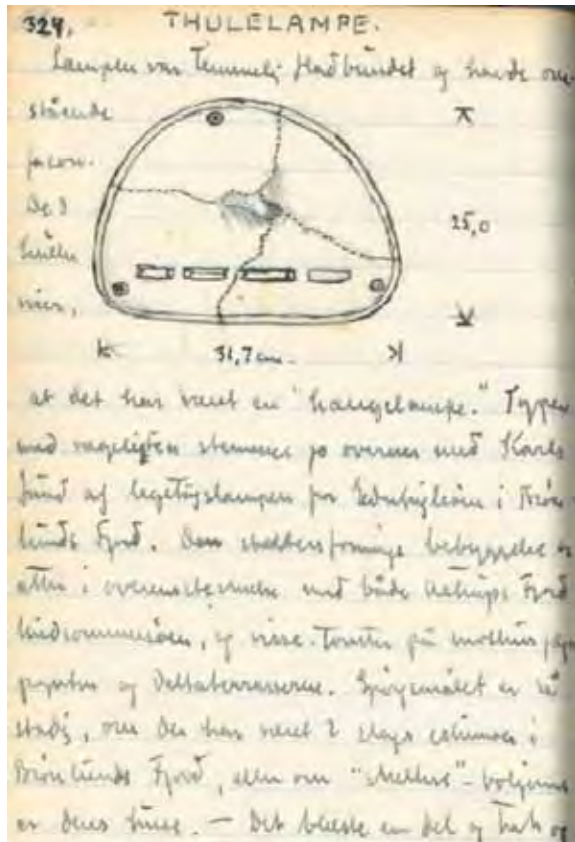 324. THULELAMPE.
Lampen var temmelig fladbundet og havde om-
stående
facon.
De 3
huller
viser,
25,0
31,7 cm.
at det har været en "hængelampe." Typen
med vægligsten stemmer jo overens med
fund af legetøjslampen fra i Brøn-
lunds Fjord. Den bebyggelse er
atter i overensstemmelse med både Astrups Fjord
, og visse Tomter på
og Deltaterrasserne. Spørgsmålet er så
stadig, om der har været 2 slags i
Brønlunds Fjord, eller om
er deres huse. — Det blæste en del og trak og